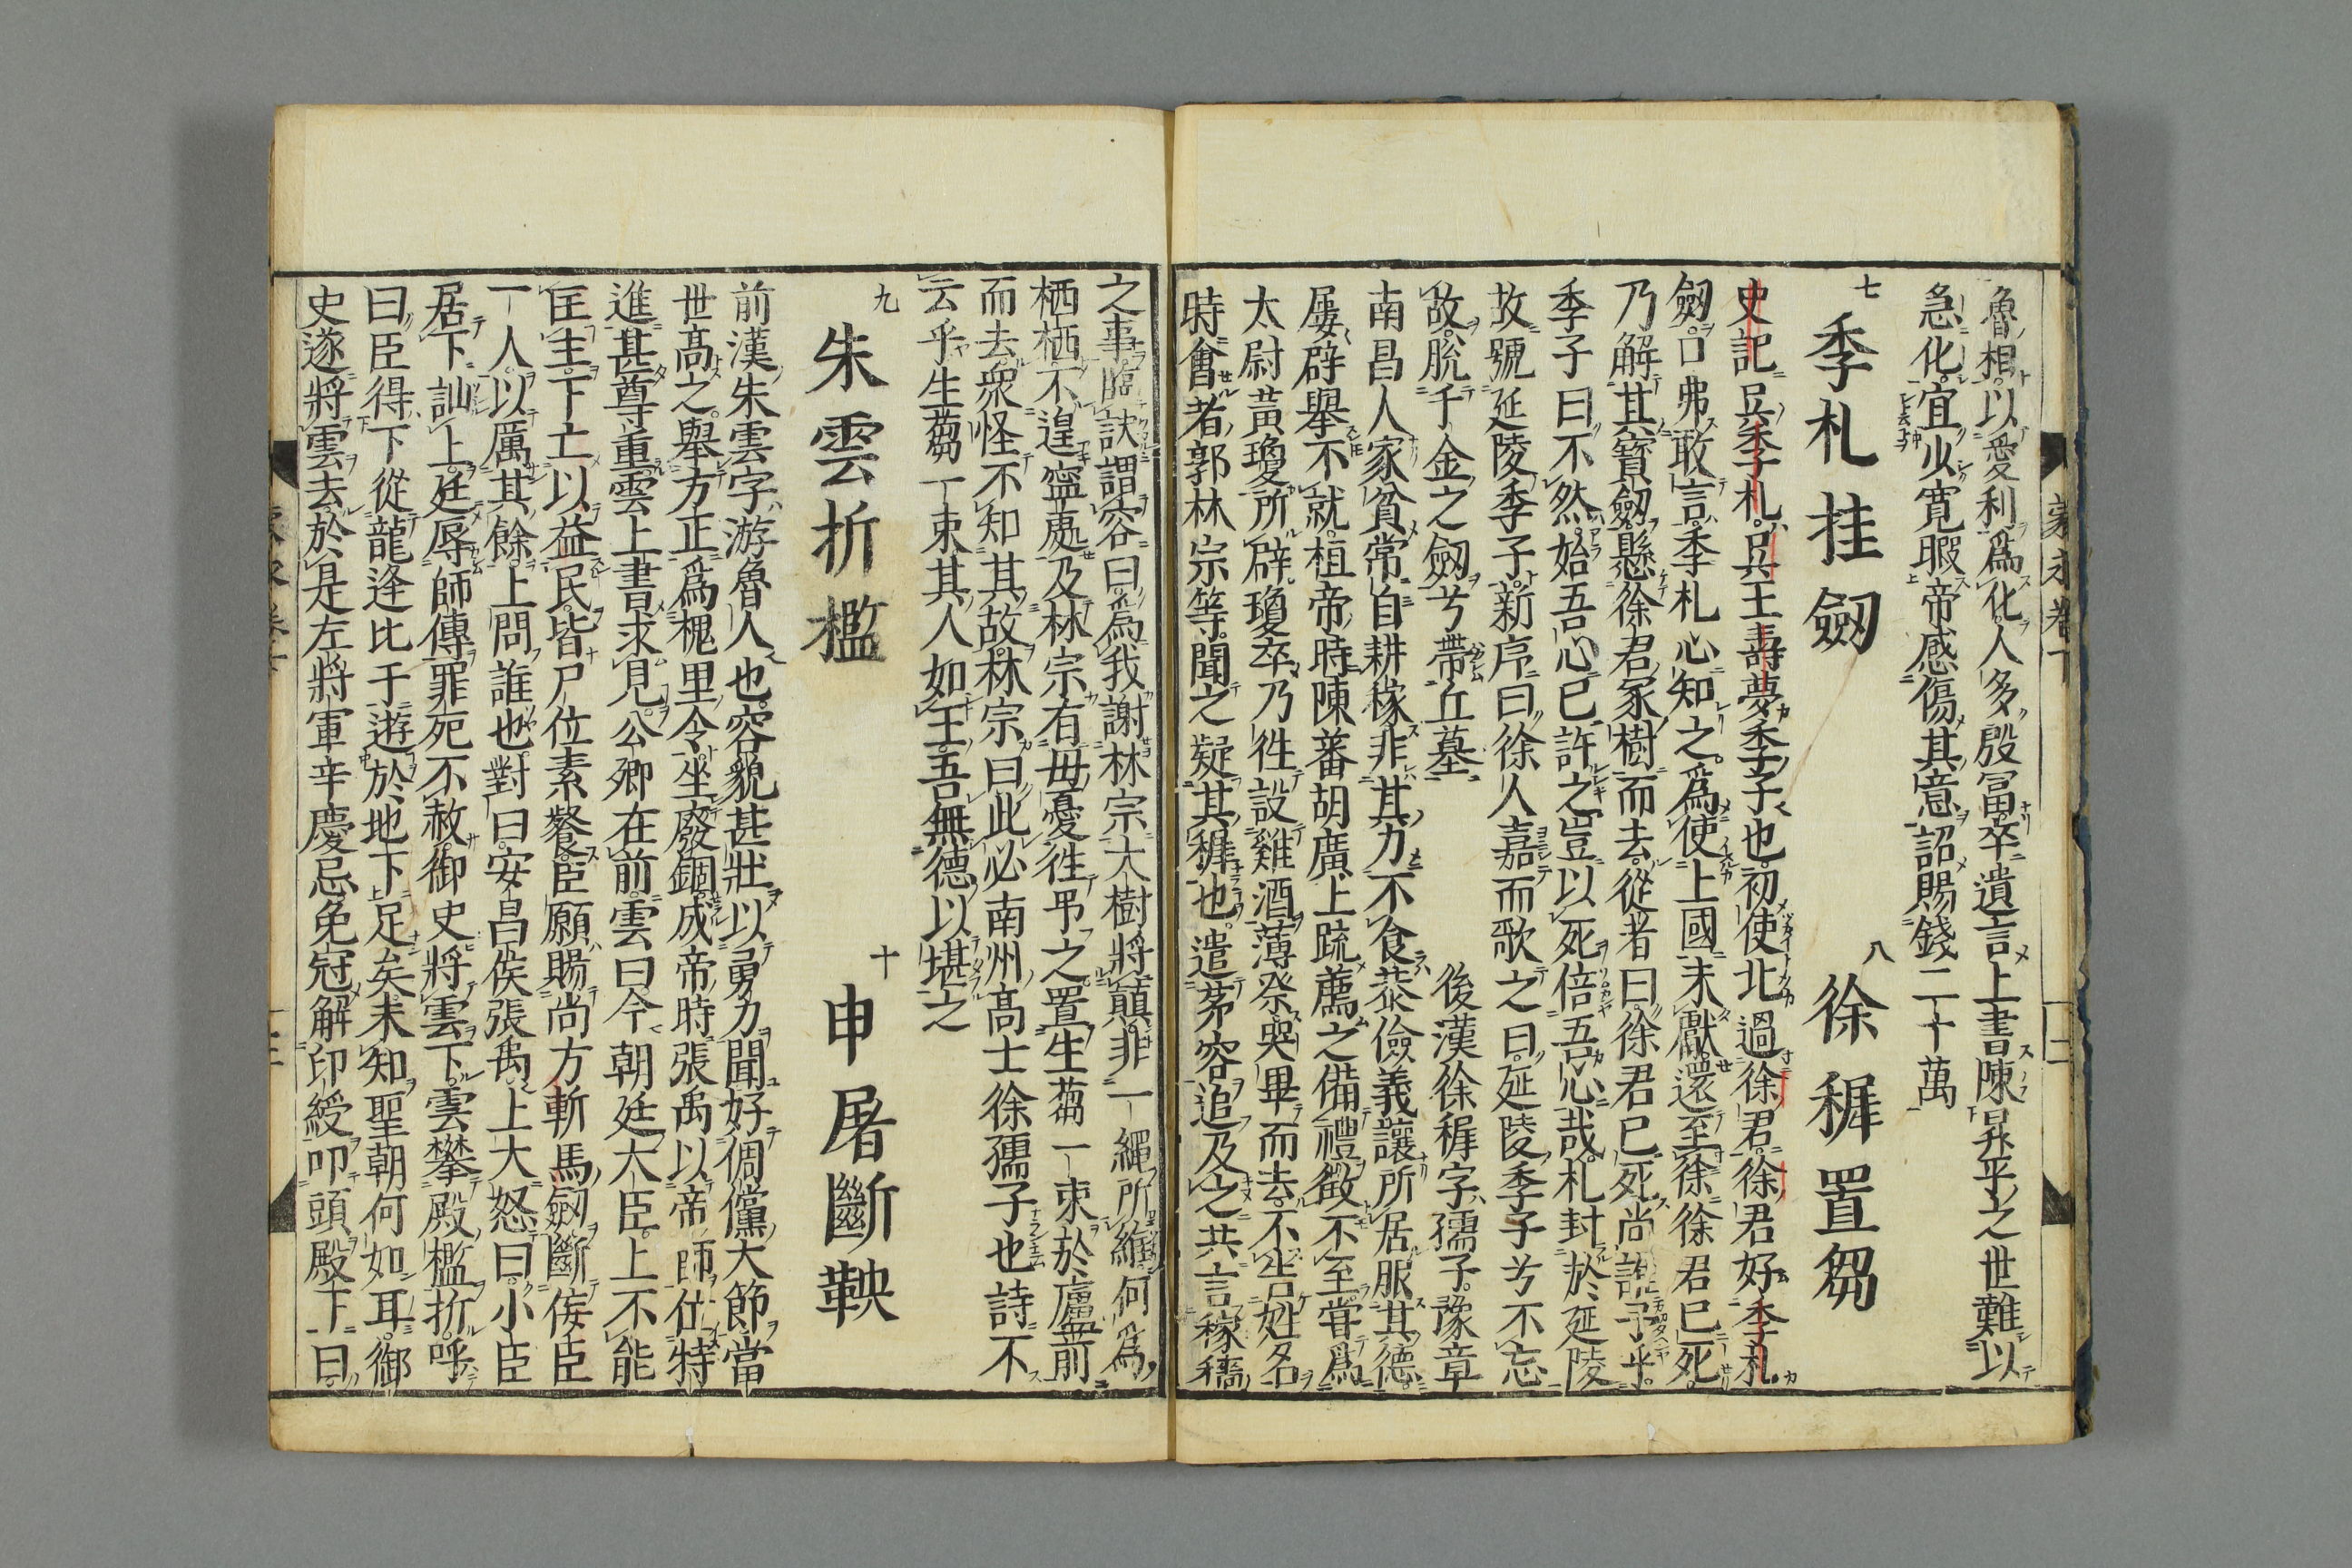 魯相以愛利爲化人多殷冨卒遺言上書陳昇平之世難以
急化宜少寛暇帝感傷其意詔賜錢二十萬
七 季札挂劔 八 徐穉置芻
史記吳季札吳王壽夢季子也初使北過徐君徐君好季札
劔口弗敢言季札心知之爲使上國未獻還至徐徐君已死
乃解其寶劔懸徐君冢樹而去從者曰徐君已死尚誰予乎
季子曰不然始吾心已許之豈以死倍吾心哉札封於延陵
故號延陵季子新序曰徐人嘉而歌之曰延陵季子兮不忘
故脫千金之劔兮帶丘墓 後漢徐穉字孺子豫章
南昌人家貧常自耕稼非其力不食恭儉義讓所居服其德
屢辟舉不就桓帝時陳蕃胡廣上疏薦之備禮徵不至嘗爲
太尉黃瓊所辟瓊卒乃徃設雞酒薄祭哭畢而去不告姓名
時會者郭林宗等聞之疑其穉也遣茅容追及之共言稼穡
之事臨訣謂容曰爲我謝林宗大樹將顚非一繩所維何爲
栖栖不遑寧處及林宗有母憂徃弔之置生蒭一束於廬前
而去衆怪不知其故林宗曰此必南州高士徐孺子也詩不
云乎生蒭一束其人如玉吾無德以堪之
九 朱雲折檻 十 申屠斷鞅
前漢朱雲字游魯人也容貌甚壯以勇力聞好倜儻大節當
世高之舉方正爲槐里令坐廢錮成帝時張禹以帝師位特
進甚尊重雲上書求見公卿在前雲曰今朝廷大臣上不能
匡主下亡以益民皆尸位素餐臣願賜尚方斬馬劔斷佞臣
一人以厲其餘上問誰也對曰安昌侯張禹上大怒曰小臣
居下訕上廷辱師傅罪死不赦御史將雲下雲攀殿檻折呼
曰臣得下從龍逄比干遊於地下足矣未知聖朝何如耳御
史遂將雲去於是左將軍辛慶忌免冠解印綬叩頭殿下曰